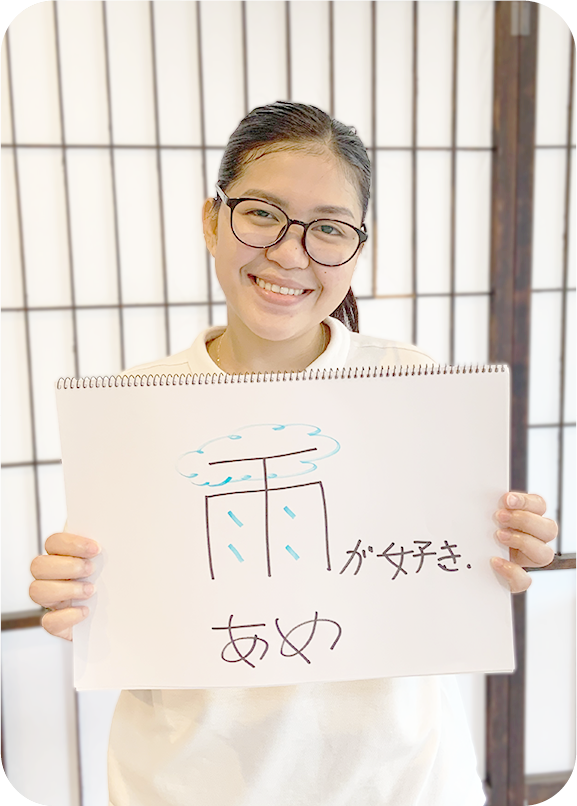 雨が好き.
あめ